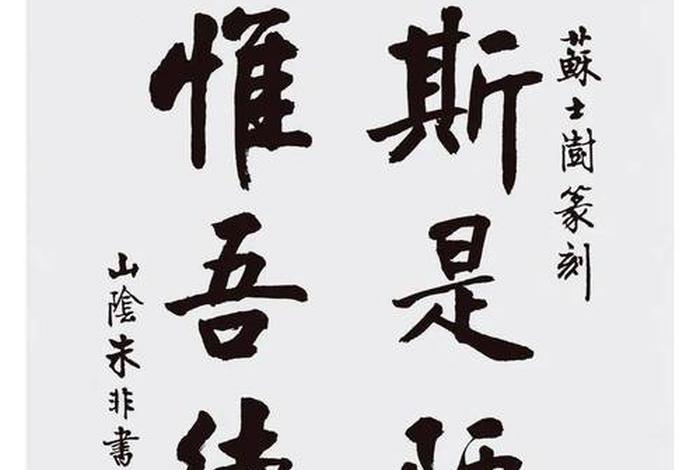 蘇士澍篆刻
斯是
惟吾
山陰朱非書